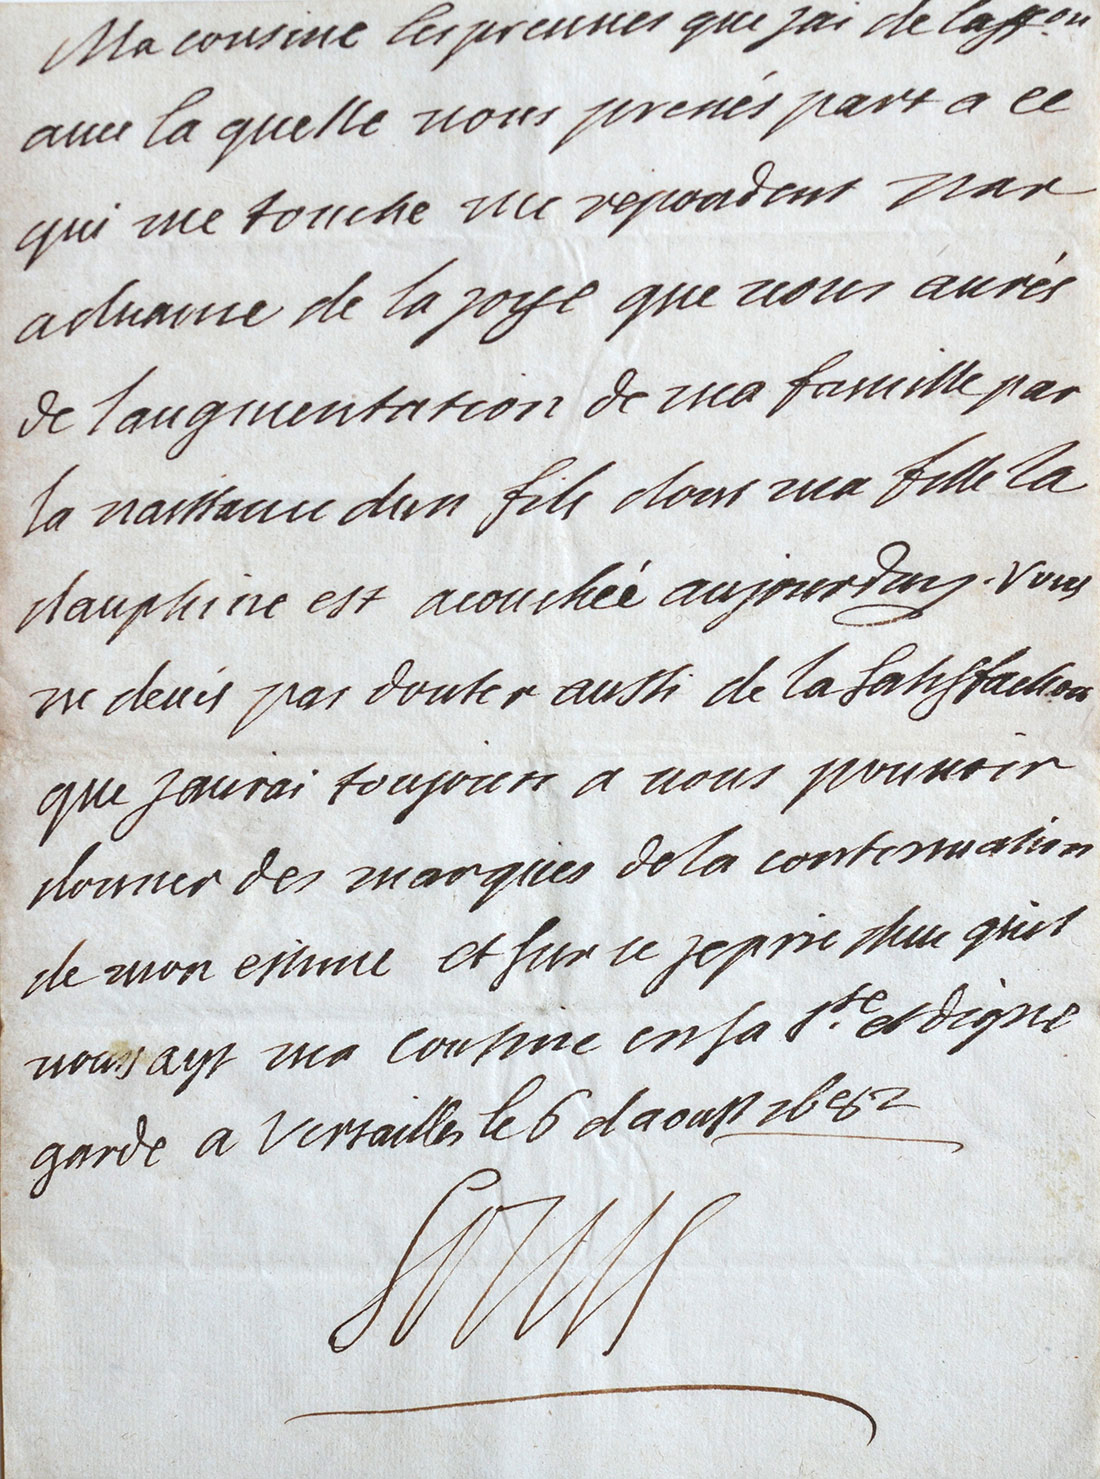 Ma cousine les preuues que jai de laff.on
auec la quelle vous prenés part a ce
qui me touche me repondent par
aduance de la joye que vous aurés
de laugmentation de ma famille par
la naissance dun fils dont ma fille la
dauphine est acouchée aujourduy. Vous
ne deués pas douter aussi de la satisfaction
que jaurai toujours a vous pouuoir
donner des marques de la continuation
de mon estime et sur ce je prie dieu quil
vous ayt ma cousine en sa s.te et digne
garde a Versailles le 6 daoust 1682
Louis